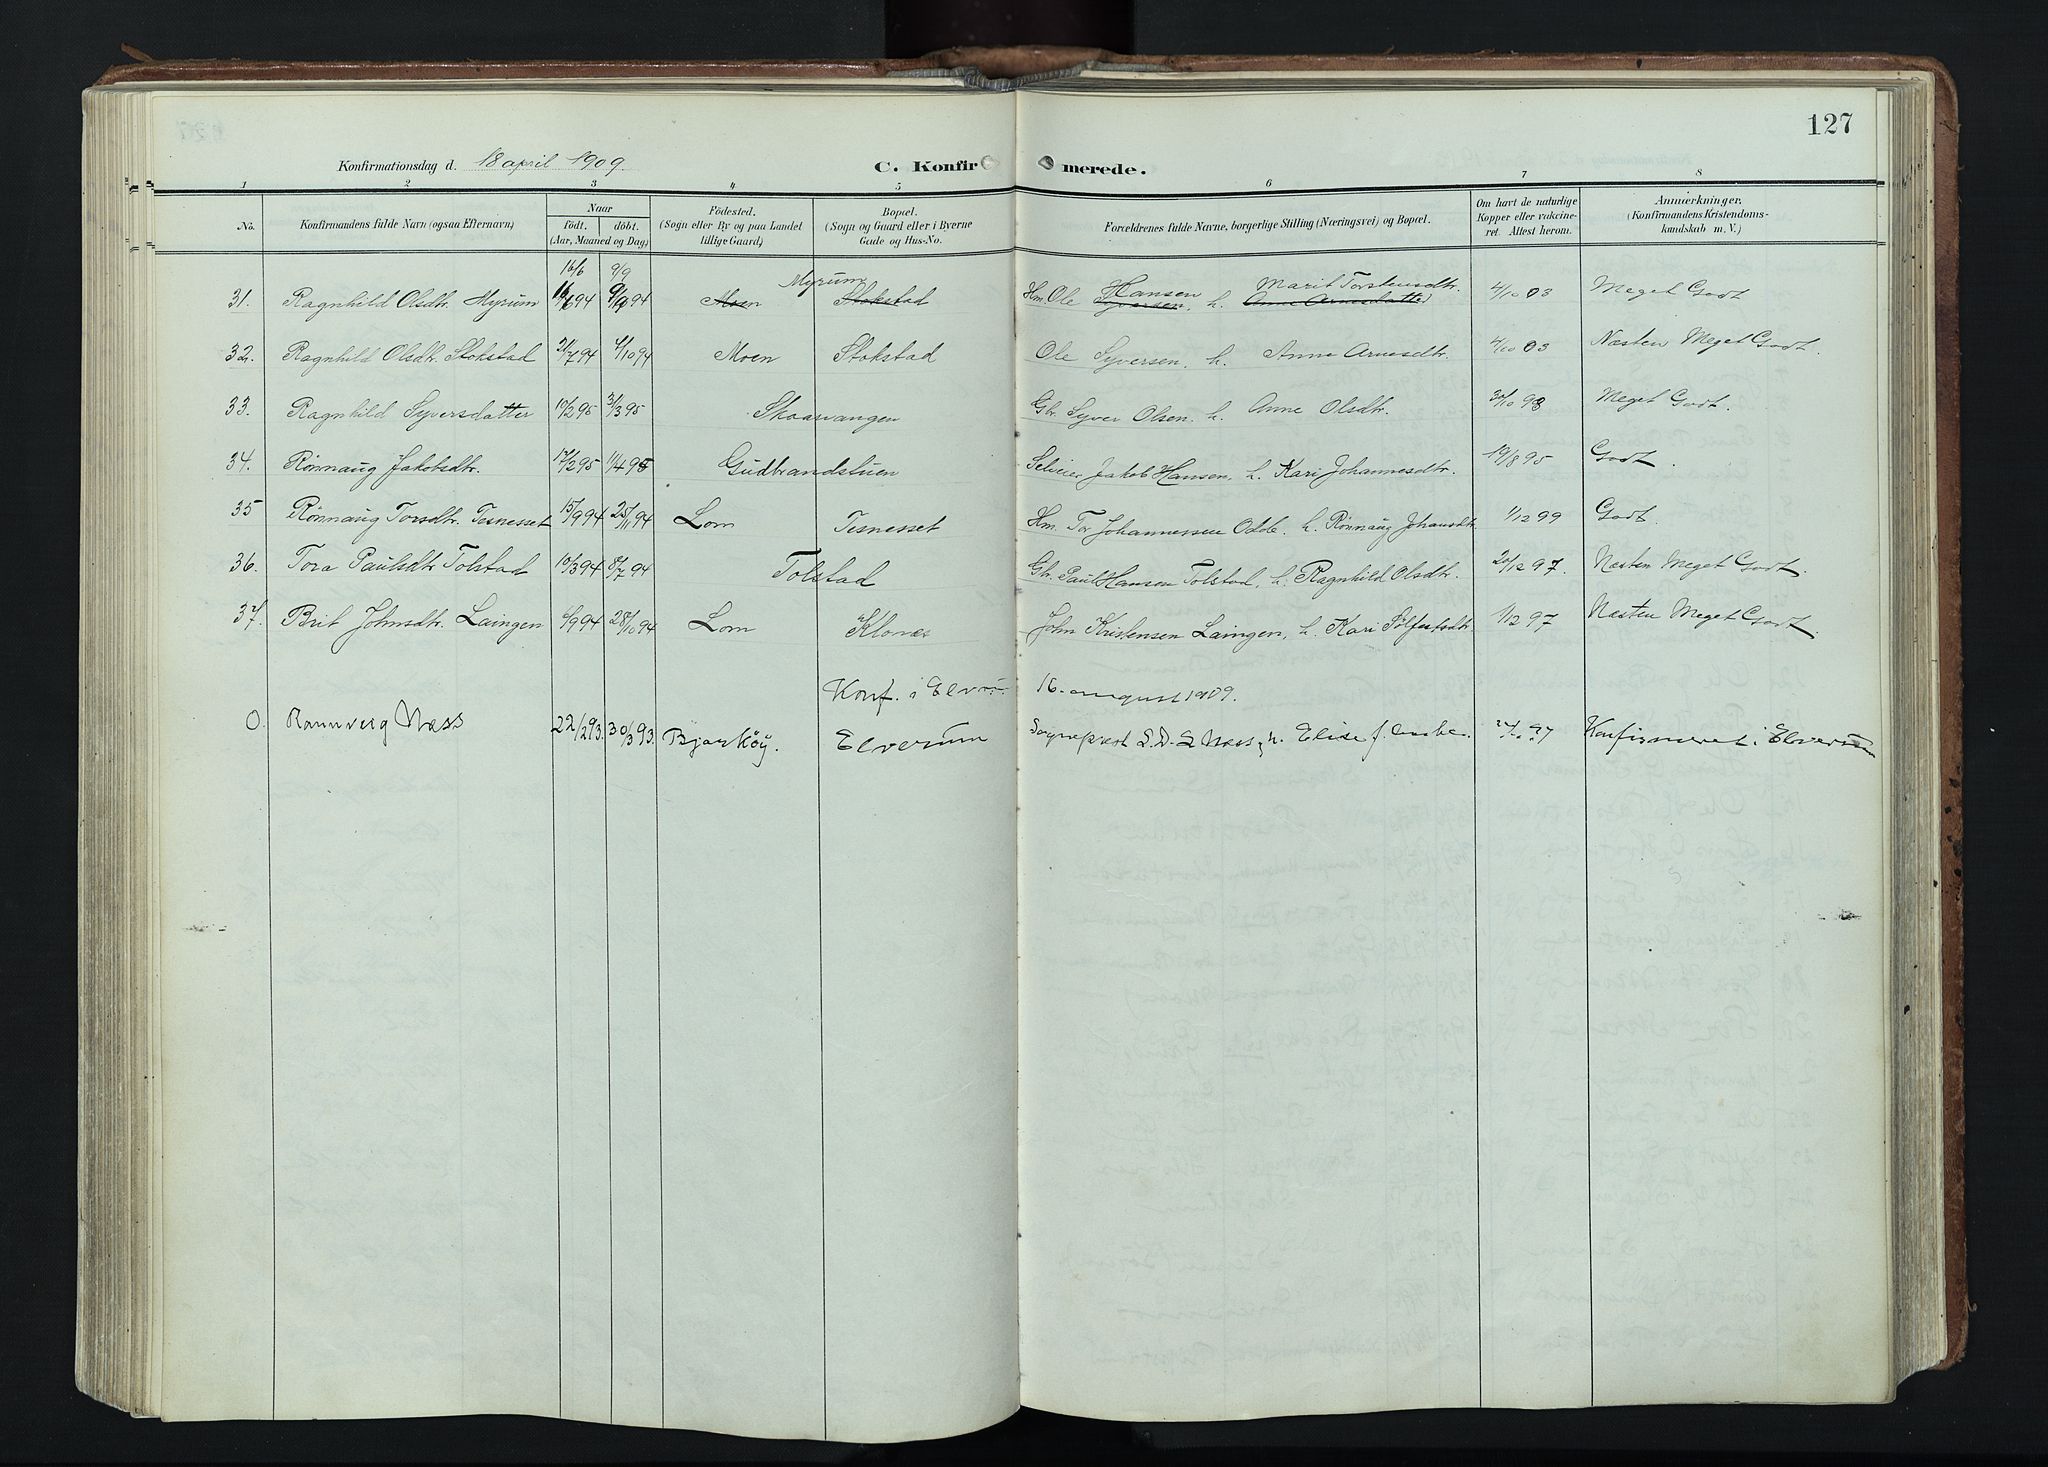 127
Konfirmationsdag d. 18 april 1909. C. Konfirmerede.
1 2 3 4 5 6 7 8
No. Konfirmandens fulde Navn (ogsaa Efternavn) Naar født. døbt. (Aar, Maaned og Dag) Fødested. (Sogn eller By og paa Landet tillige Gaard) Bopæl. (Sogn og Gaard eller i Byerne Gade og Hus-No. Forældrenes fulde Navne, borgerlige Stilling (Næringsvei) og Bopæl. Om havt de naturlige Kopper eller vakcineret. Attest herom. Anmerkninger. (Konfirmandens Kristendomskundskab m. V.)
16/6 9/9 Myrum Hansen Marit Torstensdtr.
31. Ragnhild Olsdtr. Myrum 16/6 94 9/9 94 Moen Stokstad Hm. Ole Syversen, h. Anne Arnesdatter 4/10 03 Meget Godt
32. Ragnhild Olsdtr. Stokstad 21/7 94 4/10 94 Moen Stokstad Ole Syversen, h. Anne Arnesdtr. 4/10 03 Næsten Meget Godt.
33. Ragnhild Syversdatter 10/2 95 31/3 95 Skaarvangen Gbr. Syver Olsen, h. Anne Olsdtr. 30/10 98 Meget Godt.
34. Rønnaug Jakobsdtr. 17/2 95 11/4 95 Gudbrandstuen Jakob Hansen, h. Kari Johannesdtr. 19/8 95 Godt.
35 Rønnaug Torsdtr. Tesnesset 15/9 94 25/11 94 Lom Tesnesset Hm. Tor Johannessen Odde h. Rønnaug Johansdtr 1/12 99 Godt.
36. Tora Paulsdtr Tolstad 10/3 94 8/7 94 Tolstad Gbr. Paul Hansen Tolstad, h. Ragnhild Olsdtr. 20/12 97. Næsten Meget Godt.
37. Brit Johnsdtr. Laingen 6/9 94 28/10 94 Lom Klones John Kristensen Laingen, h. Kari Sølfestsdtr 1/12 97 Næsten Meget Godt.
Konf. i Elverum 16. august 1909.
0. Rannveig Næss 22/2 93. 30/3 93. Bjarkøy. Elverum Sogneprest Næss, h. Elise f. Konfirmeret i Elverum